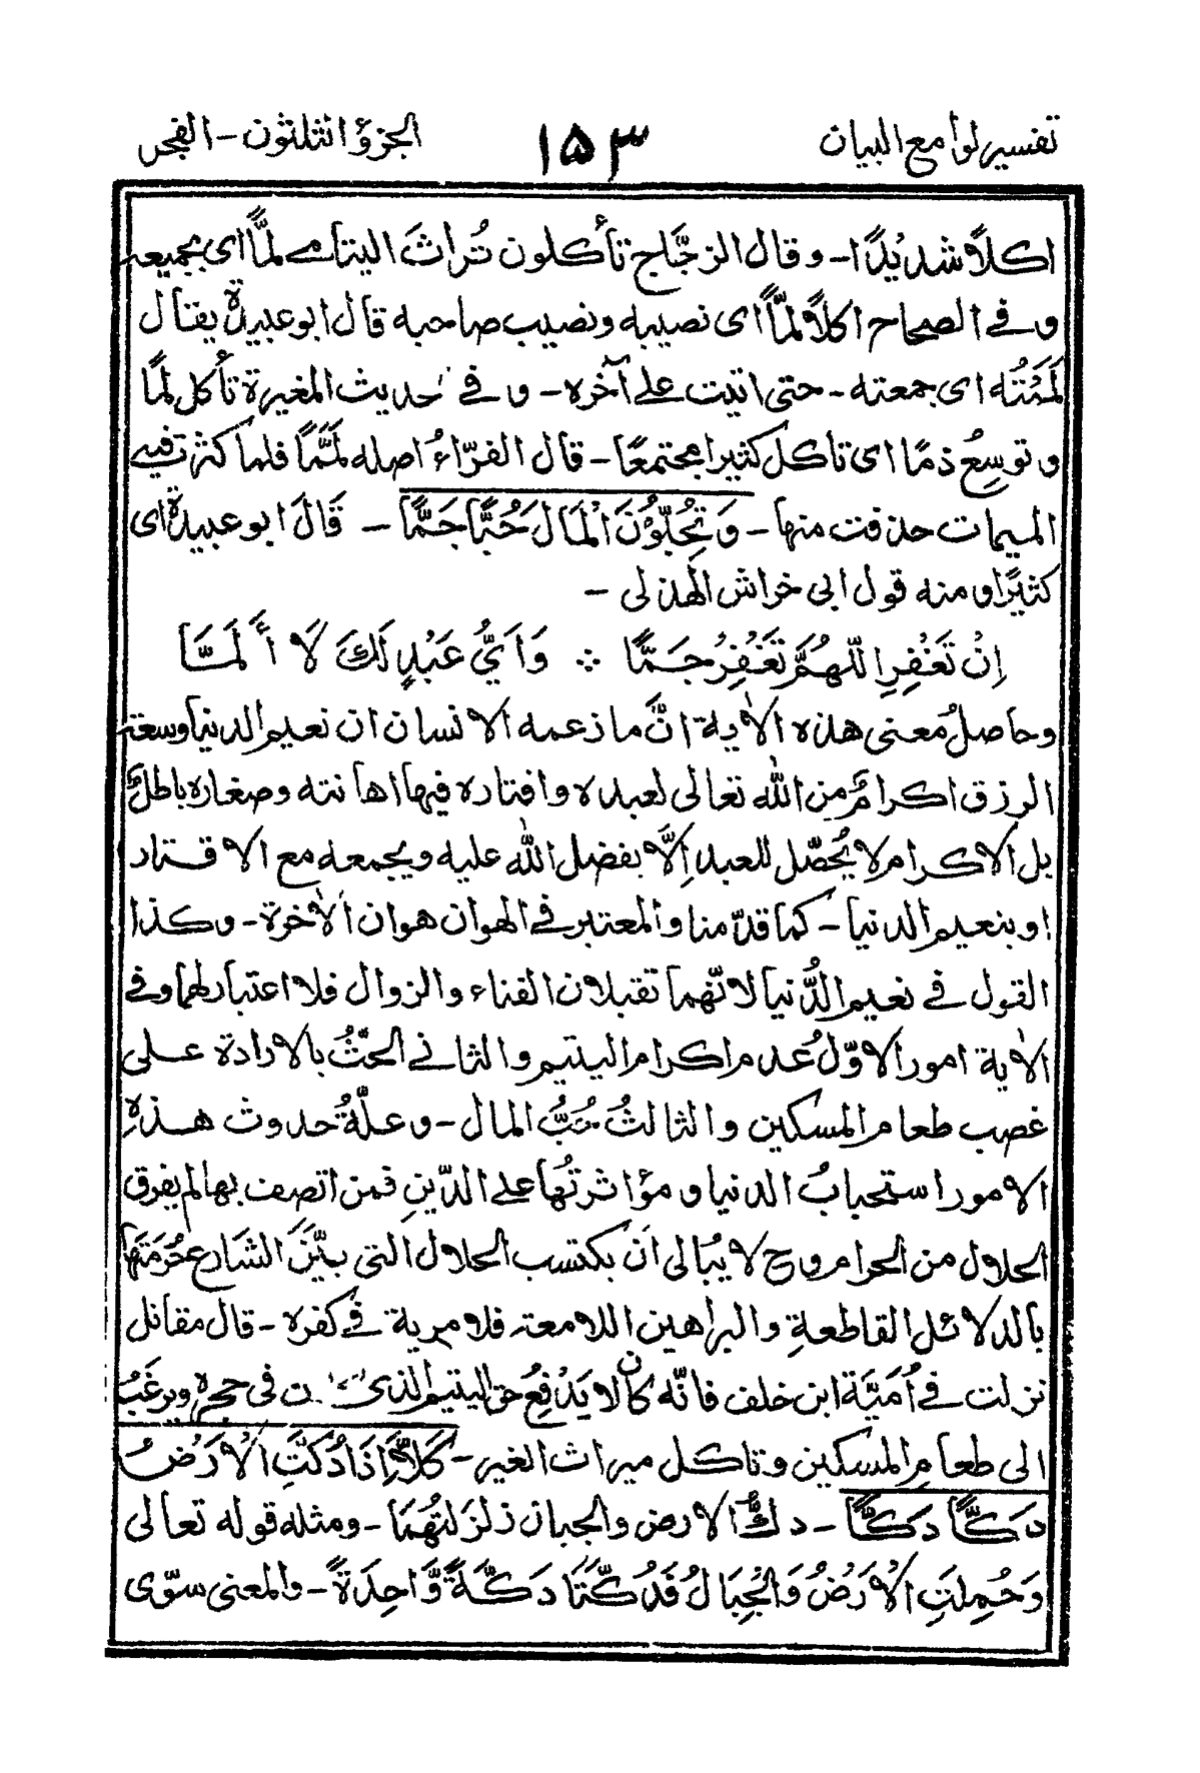 تفسير لوامع البيان ١٥٣ الجزؤ الثلثون - الفجر
اكلاً شديدًا - وقال الزجّاج تأكلون تُراثَ اليتامے لمًّا اى بجميعه
وفى الصحاح اكلاً لمًّا اى نصيبه ونصيب صاحبه قال ابو عبيدة يقال
لَمَمْتُه اى جمعته - حتى اتيت على آخره - وفى حديث المغيرة تأكل لمًّا
وتوسِعُ ذمًا اى تاكل كثيرا مجتمعًا - قال الفرّاءُ اصله لَمَمًا فلما كثرت فيه
الميمات حذفت منها - وَتُحِبُّوْنَ الْمَالَ حُبًّا جَمًّا - قَالَ ابو عبيدة اى
كثيرًا ومنه قول ابى خراش الهذلى -
اِنْ تَغْفِرِ اللّهُمَّ تَغْفِرْ جَمًّا ؞ وَاَيُّ عَبْدٍ لَكَ لَا أَلَمَّا
وحاصلُ معنى هذه الاٰية انَّ ما زعمه الانسان ان نعيم الدنيا وسعة
الرزق اكرامٌ من الله تعالى لعبده واقتاره فيها اهانته وصغاره باطلٌ
بل الاكرام لا يُحصّل للعبد اِلَّا بفضل الله عليه ويجمعه مع الاقتار
او بنعيم الدنيا - كما قدّمنا والمعتبر فى الهوان هوان الاٰخرة - وكذا
القول فى نعيم الدُّنيا لانّهما تقبلان الفناء والزوال فلا اعتبار لهما وفى
الاٰية امور الاوّلُ عدم اكرام اليتيم والثانى الحثُّ بالارادة على
غصب طعام المسكين والثالثُ حُبُّ المال - وعلّةُ حدوث هذهِ
الامور استحبابُ الدنيا ومؤاثرتُها على الدّينِ فمن اتصف بها لم يفرق
الحلال من الحرام وح لا يُبالى اَن يكتسب الحلال التى بيَّنَ الشارع حُرمَتَها
بالدلائل القاطعةِ والبراهين اللامعة فلا مرية فى كفره - قال مقاتل
نزلت فى اُمَيَّة ابن خلف فانّه كان لا يَدْفِعُ حق اليتيم الذى فى حجره ويرغَبُ
الى طعامِ المسكين وتاكل ميراث الغير - كَلَّآ اِذَا دُكَّتِ الْاَرْضُ
دَكًّا دَكًّا - دكُّ الارض والجبال زلزلتُهُمَا - ومثله قوله تعالى
وَحُمِلَتِ الْاَرْضُ وَالْجِبَالُ فَدُكَّتَا دَكَّةً وَّاحِدَةً - والمعنى سوّى